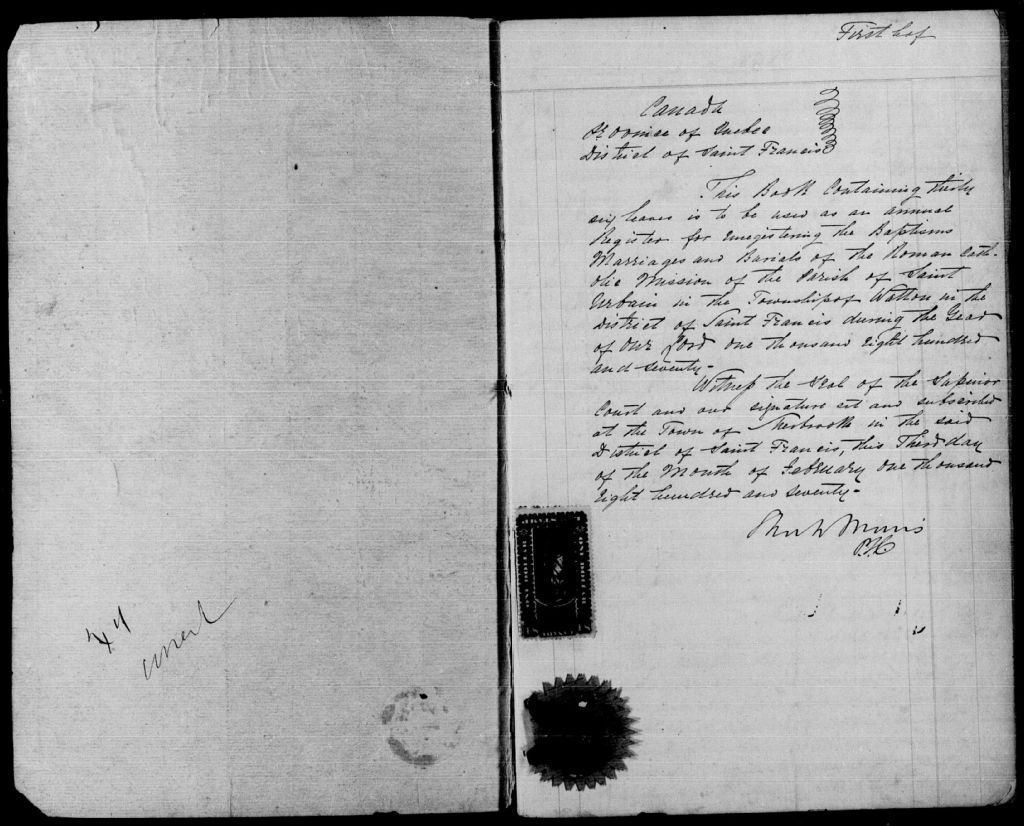 44
First leaf
Canada
Province of Quebec
District of Saint Francis
This Book Containing thirty
six leaves is to be used as an annual
Register for enregistering the Baptisms
Marriages and Burials of the Roman Cath-
olic Mission of the Parish of Saint
Urbain in the Township of Wotton in the
District of Saint Francis during the Year
of Our Lord One thousand Eight hundred
and seventy-
Witness the Seal of the Superior
Court and our signature set and subscribed
at the Town of Sherbrooke in the said
District of Saint Francis, this Third day
of the Month of February One thousand
Eight hundred and seventy-
Morris
P.S.C
ONE DOLLAR
ONE DOLLAR